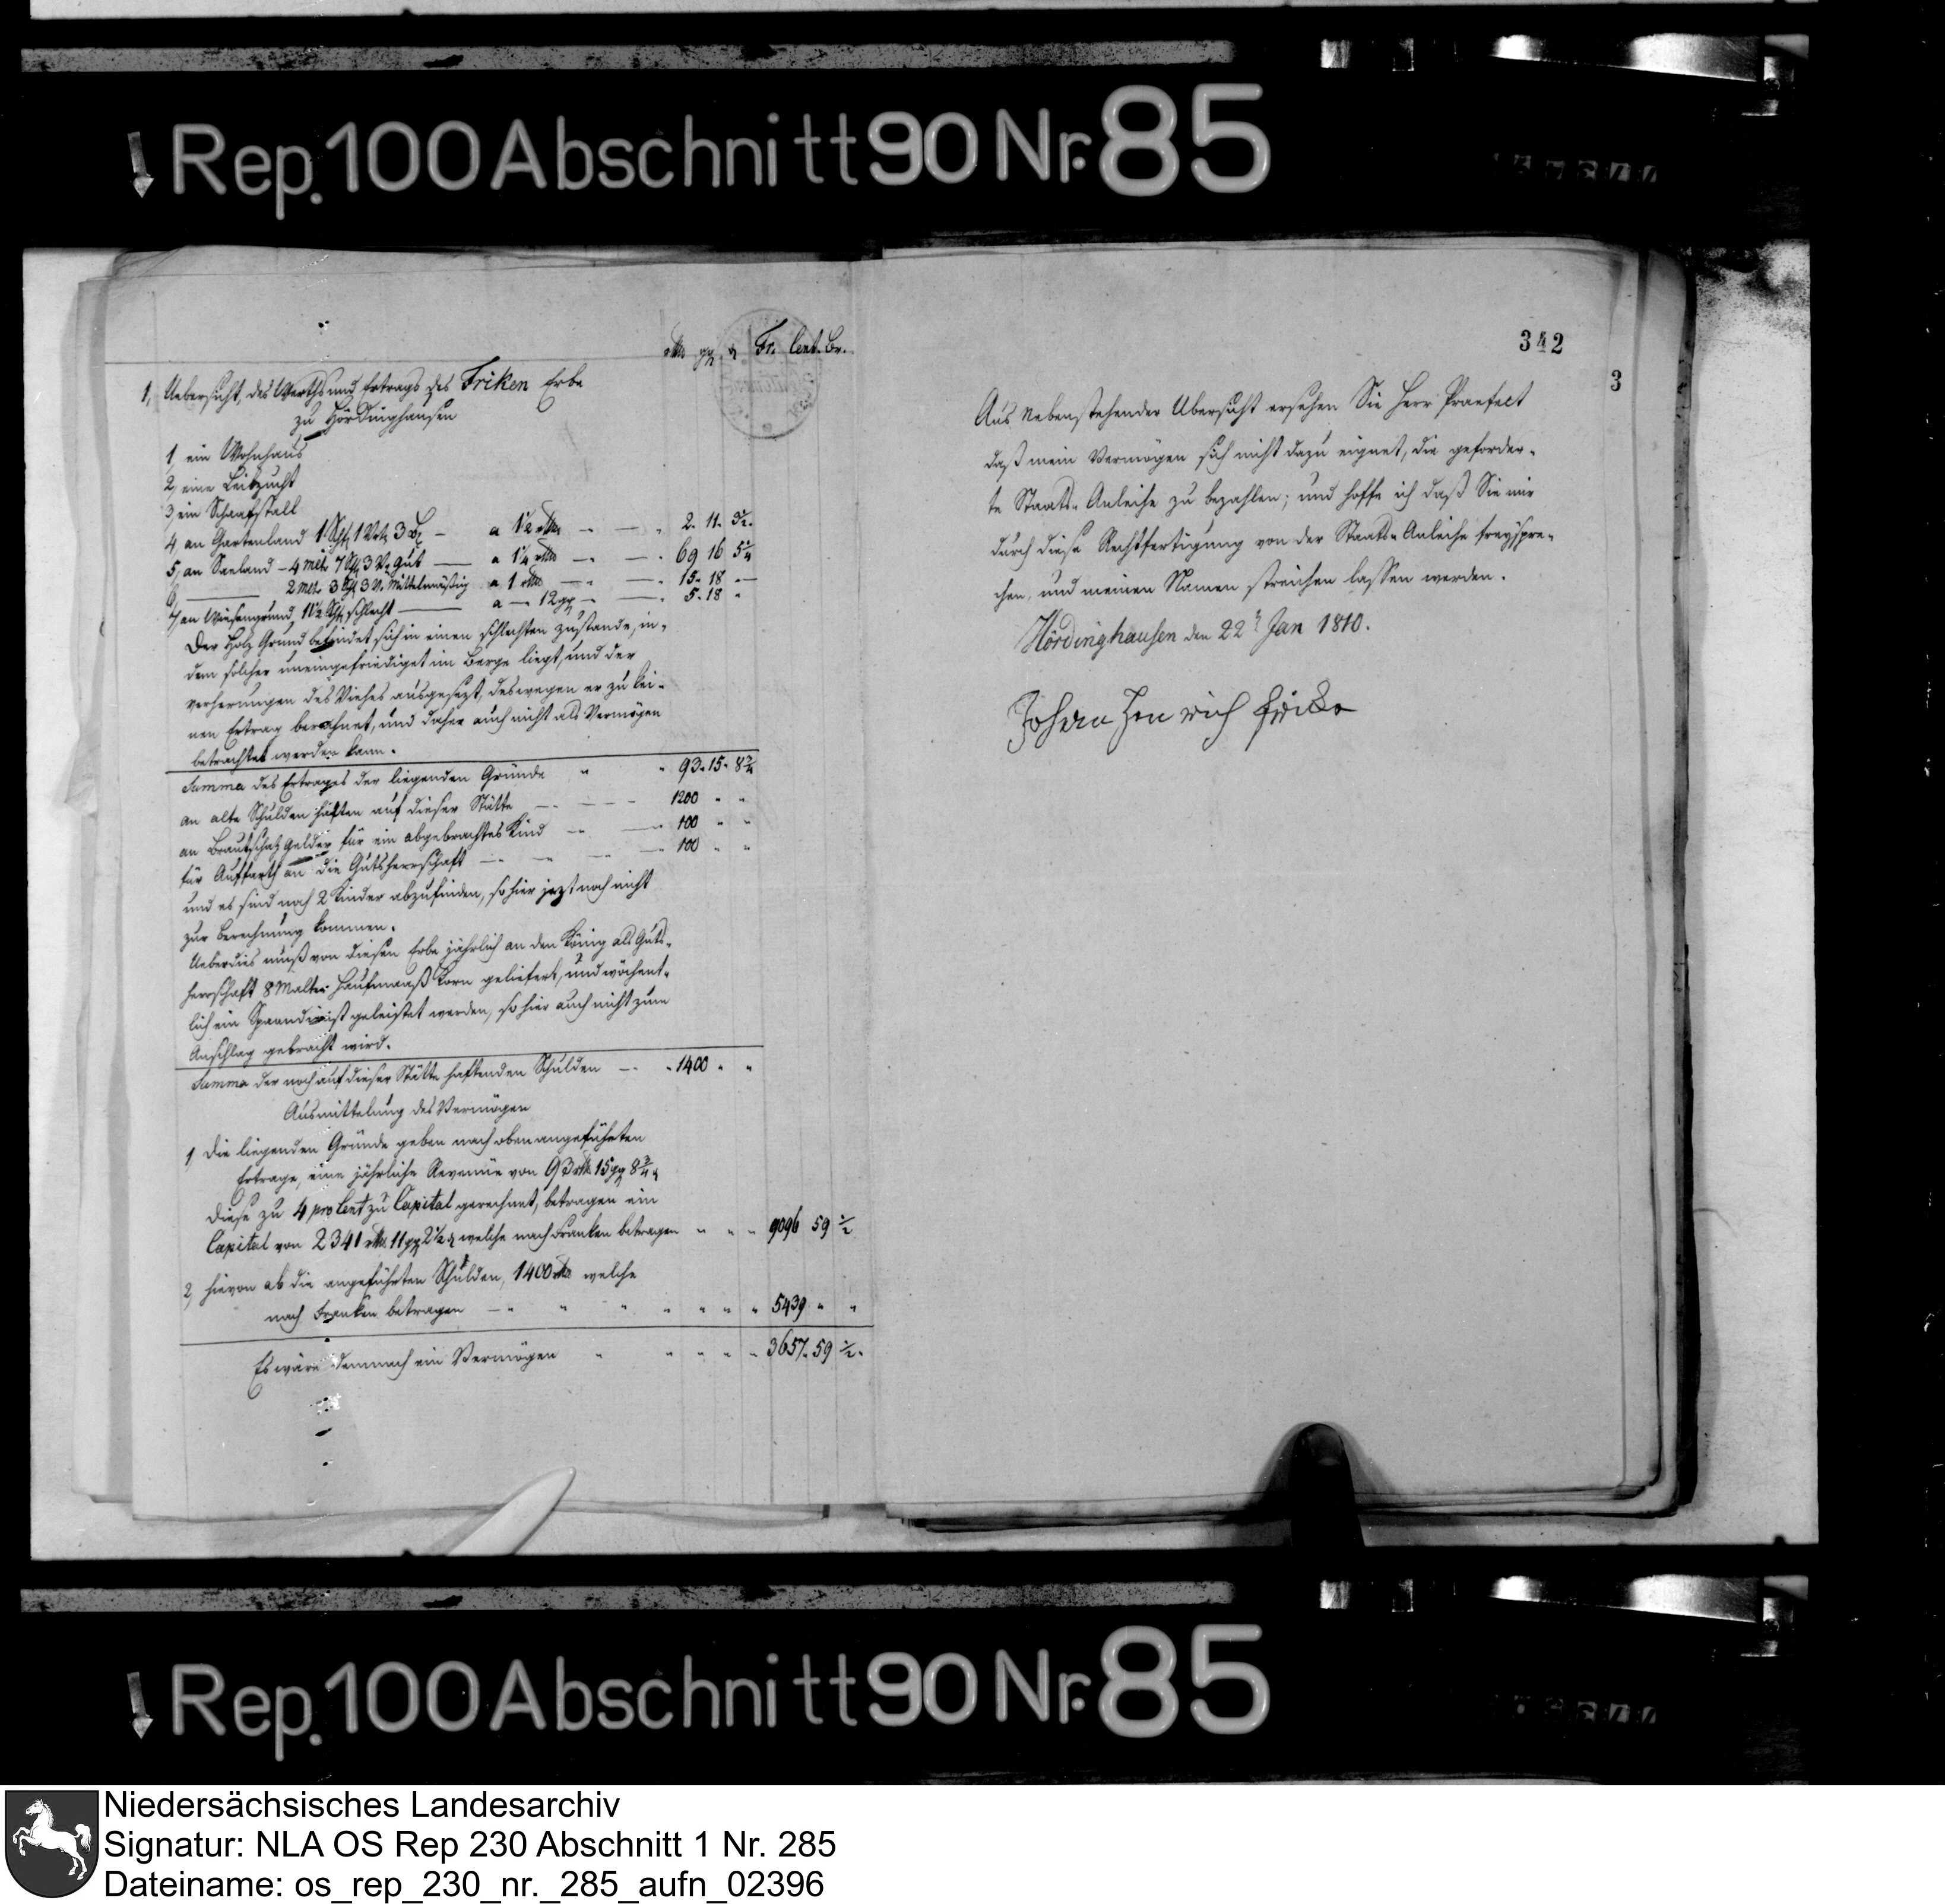 Rep. 100 Abschnitt 90 Nr. 85
rthlr gg ₰ Fr. Cent. Br.
1, Uebersicht, des Werths und Ertrags des Friken Erbe
zu Hördinghausen
1, ein Wohnhaus
2, eine Leibzucht
3, ein Schaafstall
4, an Gartenland 1 Schfl 1 Vrt. 3 B. — a 1½ rthlr — — 2. 11. 3½.
5, an Saeland – 4 mltr. 7 Schfl 3 V. gut — a 1¼ rthlr — — 69 16 5¼
6, — 2 mltr. 3 Schfl 3 V. mittelmäßig a 1 rthlr — — 15. 18 " —
7, an Wiesengrund, 11½ Schfl schlecht — a — 12 gg — — 5. 18 "
Der Holz Grund befindet sich in einen schlechten zustande, in-
dem solcher uneingefriediget im Berge liegt, und der
verherungen des Viehes ausgesezt, deswegen er zu kei-
nen Ertrag berechnet, und daher auch nicht als Vermögen
betrachtet werden kann.
Summa des Ertrages der liegenden Gründe " " 93. 15. 8¾
an alte Schulden haften auf dieser Stätte — — — 1200 " "
an Brautschatz gelder für ein abgebrachtes Kind — — 100 " "
für Auffarth an die Gutsherrschaft — — — — 100 " "
und es sind noch 2 Kinder abzufinden, so hier jezt noch nicht
zur Berechnung kommen.
Ueberdies muß von diesen Erbe jährlich an den König als Guts-
herrschaft 8 Malter Haufmaaß Korn geliefert, und wöchent-
lich ein Spanndienst geleistet werden, so hier auch nicht zum
Anschlag gebracht wird.
Summa der noch auf dieser Stätte haftenden Schulden — " 1400 " "
Ausmittelung des Vermögen
1, Die liegenden Gründe geben nach oben angeführten
Ertrage, eine jährliche Revenüe von 93 rthlr 15 gg 8¾ ₰
diese zu 4 pro Cent zu Capital gerechnet, betragen ein
Capital von 2341 rthlr 11 gg 2½ ₰ welche nach Franken betragen " " " 9096 59 ½
2, hievon ab die angeführten Schulden, 1400 rthlr welche
nach Franken betragen — " " " " " " " 5439 " "
Es wäre demnach ein Vermögen " " " " " 3657. 59 ½.
342
3
Aus nebenstehender Ubersicht ersehen Sie Herr Praefect
daß mein Vermögen sich nicht dazu eignet, die geforder-
te Staats-Anleihe zu bezahlen; und hoffe ich daß Sie mir
durch diese Rechtfertigung von der Staats-Anleihe freyspre-
chen, und meinen Namen streichen lassen werden.
Hördinghausen den 22t Jan 1810.
Johan Henrich Frike
Rep. 100 Abschnitt 90 Nr. 85
Niedersächsisches Landesarchiv
Signatur: NLA OS Rep 230 Abschnitt 1 Nr. 285
Dateiname: os_rep_230_nr._285_aufn_02396